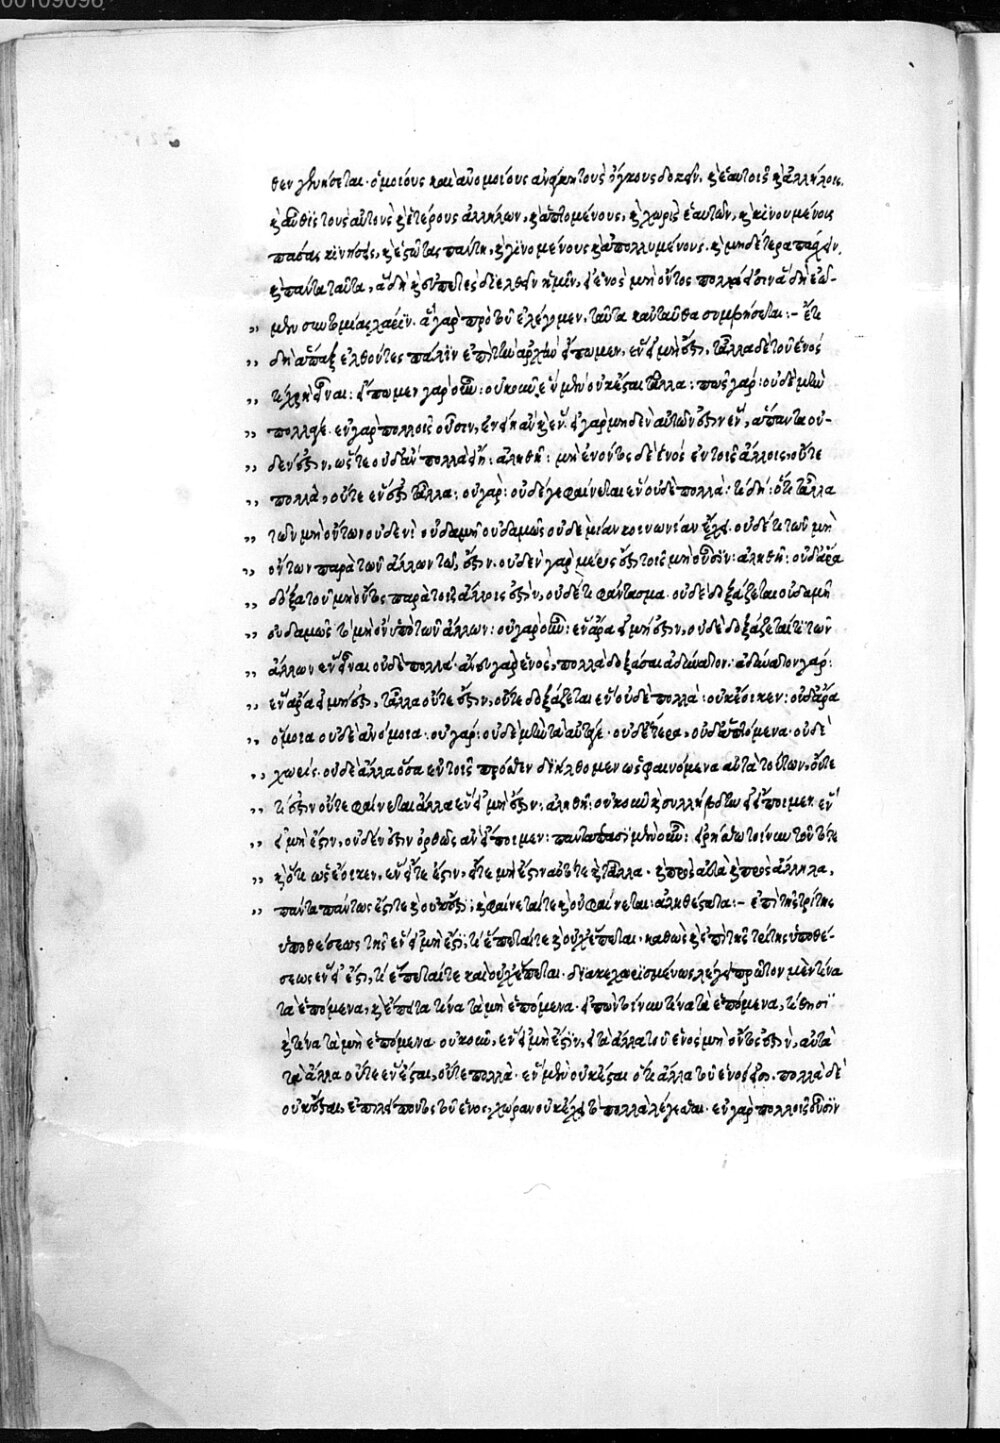 00109096
θεν γενήσεται· ὁμοίους καὶ ἀνομοίους ἀνάγκη τοὺς ὄγκους δοκεῖν, καὶ ἑαυτοῖς καὶ ἀλλήλοις,
καὶ αὖθις τοὺς αὐτοὺς καὶ ἑτέρους ἀλλήλων, καὶ ἁπτομένους, καὶ χωρὶς ἑαυτῶν, καὶ κινουμένους
πάσας κινήσεις, καὶ ἑστῶτας πάντη, καὶ γινομένους καὶ ἀπολλυμένους, καὶ μηδέτερα
καὶ πάντα ταῦτα, ἃ δὴ καὶ εὐπετὲς διελθεῖν ἡμῖν, εἰ ἑνὸς μὴ ὄντος πολλά ἐστιν
αʹ γὰρ πρὸ τοῦ ἐλέγομεν, ταῦτα κἀνταῦθα συμβήσεται :– ἔτι
δὴ ἅπαξ ἐλθόντες πάλιν ἐπὶ τὴν ἀρχὴν εἴπωμεν, ἓν εἰ μὴ ἔστι, τἆλλα δὲ τοῦ ἑνὸς
τί χρὴ εἶναι: εἴπωμεν γὰρ οὖν: οὐκοῦν ἓν μὲν οὐκ ἔσται τἆλλα: πῶς γάρ: οὐδὲ μὴν
πολλά γε· ἐν γὰρ πολλοῖς οὖσιν, ἐνείη ἂν καὶ ἕν· εἰ γὰρ μηδὲν αὐτῶν ἐστιν ἕν, ἅπαντα οὐ-
δέν ἐστιν, ὥστε οὐδ' ἂν πολλὰ εἴη: ἀληθῆ: μὴ ἐνόντος δὲ ἑνὸς ἐν τοῖς ἄλλοις, οὔτε
πολλά, οὔτε ἕν ἐστι τἆλλα: οὐ γάρ: οὐδέ γε φαίνεται ἓν οὐδὲ πολλά: τί δή: ὅτι τἆλλα
τῶν μὴ ὄντων οὐδενὶ οὐδαμῆ οὐδαμῶς οὐδεμίαν κοινωνίαν ἔχει· οὐδέ τι τῶν μὴ
ὄντων παρὰ τῶν ἄλλων τῳ ἐστιν· οὐδὲν γὰρ μέρος ἐστὶ τοῖς μὴ οὖσιν: ἀληθῆ: οὐδ' ἄρα
δόξα τοῦ μὴ ὄντος παρὰ τοῖς ἄλλοις ἐστίν, οὐδέ τι φάντασμα· οὐδὲ δοξάζεται οὐδαμῆ
οὐδαμῶς τὸ μὴ ὂν ὑπὸ τῶν ἄλλων: οὐ γὰρ οὖν: ἓν ἄρα εἰ μὴ ἔστιν, οὐδὲ δοξάζεταί τι τῶν
ἄλλων ἓν εἶναι οὐδὲ πολλά· ἄνευ γὰρ ἑνὸς, πολλὰ δοξάσαι ἀδύνατον: ἀδύνατον γάρ:
ἓν ἄρα εἰ μὴ ἔστι, τἆλλα οὔτε ἔστιν, οὔτε δοξάζεται ἓν οὐδὲ πολλά: οὐκ ἔοικεν: οὐδ' ἄρα
ὅμοια οὐδὲ ἀνόμοια: οὐ γάρ: οὐδὲ μὴν τὰ αὐτά γε· οὐδ' ἕτερα, οὐδὲ ἁπτόμενα· οὐδὲ
χωρὶς· οὐδὲ ἄλλα ὅσα ἐν τοῖς πρόσθεν διήλθομεν ὡς φαινόμενα αὐτὰ τούτων, οὔτε
τί ἐστιν οὔτε φαίνεται ἄλλα ἓν εἰ μὴ ἔστιν: ἀληθῆ: οὐκοῦν καὶ συλλήβδην εἰ εἴποιμεν ἓν
εἰ μὴ ἔστιν, οὐδέν ἐστιν ὀρθῶς ἂν εἴποιμεν: παντάπασι μὲν οὖν: εἰρήσθω τοίνυν τοῦτό τε
καὶ ὅτι ὡς ἔοικεν, ἓν εἴτε ἔστιν, εἴτε μὴ ἔστιν αὐτό τε καὶ τἆλλα· καὶ πρὸς αὑτὰ καὶ πρὸς ἄλληλα,
πάντα πάντως ἔστί τε καὶ οὐκ ἔστι, καὶ φαίνεταί τε καὶ οὐ φαίνεται: ἀληθέστατα :– ἐπὶ τῆς τρίτης
ὑποθέσεως τῆς ἓν εἰ μὴ ἔστι, τί ἕπεταί τε καὶ οὐχ ἕπεται· καθὼς καὶ ἐπὶ τῆς τρίτης ὑποθέ-
σεως ἓν εἰ ἔστι, τί ἕπεταί τε καὶ οὐχ ἕπεται· λέγει πρῶτον μὲν τίνα
τὰ ἑπόμενα, καὶ ἔπειτα τίνα τὰ μὴ ἑπόμενα· εἰπὼν τοίνυν τίνα τὰ ἑπόμενα, τίθησι
καὶ τίνα τὰ μὴ ἑπόμενα· οὐκοῦν, ἓν εἰ μὴ ἔστιν, εἰ τὰ ἄλλα τοῦ ἑνὸς μὴ ὄντος ἐστίν, αὐτὰ
τὰ ἄλλα οὔτε ἓν ἔσται, οὔτε πολλά· ἓν μὲν οὐκ ἔσται ὅτι ἄλλα τοῦ ἑνός ἐστι· πολλὰ δὲ
οὐκ ἔσται, ἐπιλείποντος τοῦ ἑνὸς, χώραν οὐκ ἔχει τὸ πολλὰ λέγεσθαι· ἐν γὰρ πολλοῖς οὖσιν